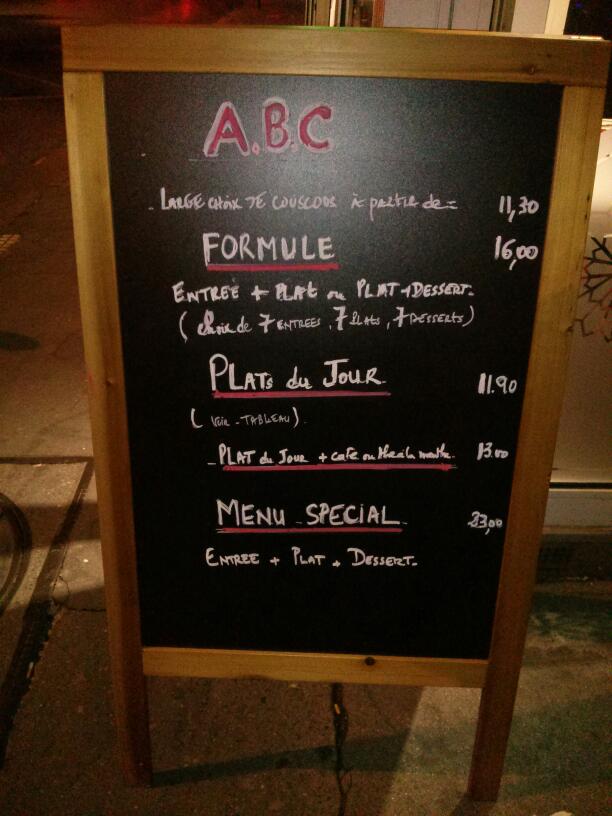 A.B.C
- LARGE CHOIX DE COUSCOUS à partir de = 11,30
FORMULE 16,00
ENTREE + PLAT ou PLAT + DESSERT.
( choix de 7 ENTREES, 7 PLATS, 7 DESSERTS)
PLATS du JOUR 11.90
( VOIR - TABLEAU ).
- PLAT du JOUR + café ou thé à la menthe. 13.00
MENU SPECIAL 23,00
ENTREE + PLAT + DESSERT.